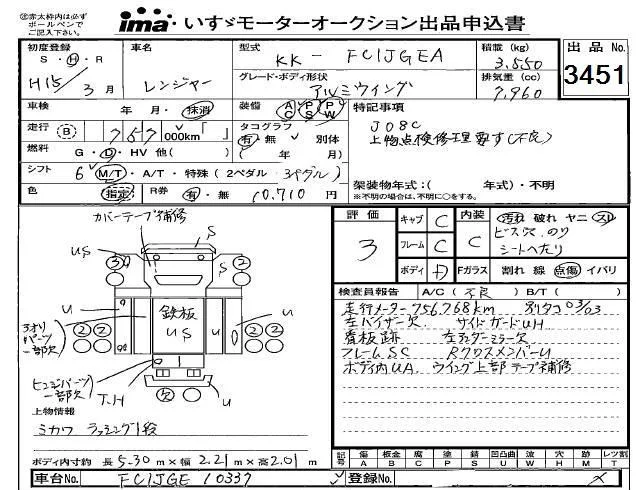 ㊟赤太枠内は必ず
ボールペンで
ご記入下さい。
ima いすゞモーターオークション出品申込書
初度登録 車名 型式 KK - FC1JGEA 積載 (kg) 3,550
S・H・R
H15/3月 レンジャー グレード・ボディ形状 アルミウイング 排気量 (cc) 7,960
出品No. 3451
車検 年・月・抹消 装備 AC PS PW 特記事項
走行 B 757,000km「 」 タコグラフ 有・無 別体 J08C
上物点検修理要す(不良)
燃料 G・D・HV 他( ) ( 年 月)
シフト 6 M/T・A/T・特殊(2ペダル 3ペダル)
架装物年式:( 年式)・不明
色 指定 R券 有・無 10,710円
※不明の場合は、不明に○をする。
カバーテープ補修
評価 3 キャブ C 内装 C 汚れ 破れ ヤニ スレ
ビス穴、のり
フレーム C シートへたり
ボディ D Fガラス 割れ 線 点傷 イパリ
検査員報告 A/C( 不良 ) B/T( )
走行メーター756,768km 別タコ03/03
左バイザー欠 サイドガードUH
看板跡 左アンダーミラー欠
フレームSC RクロスメンバーU
ボディ内UA、ウイング上部テープ補修
US S
3 2
S
U U
鉄板
US
2 2 2 2
アオリパーツ一部欠
ヒンジパーツ一部欠
T.H 欠 U
上物情報
ミカワ ラッシング1段
ボディ内寸約 長5.30m×幅2.21m×高2.01m
記号 傷A 板金B 腐C 塗P 錆S 凹凸曲U 波W 穴H 欠M レツ割T
車台No. FC1JGE 10337 登録No.